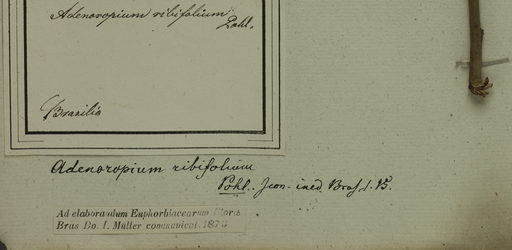 Adenoropium ribifolium
Pohl.
Brasilia
Adenoropium ribifolium
Pohl. Icon. ined. Bras. t.
Ad elaborandum Euphorbiacearum Florae
Bras Do. I. Müller communicat. 1873